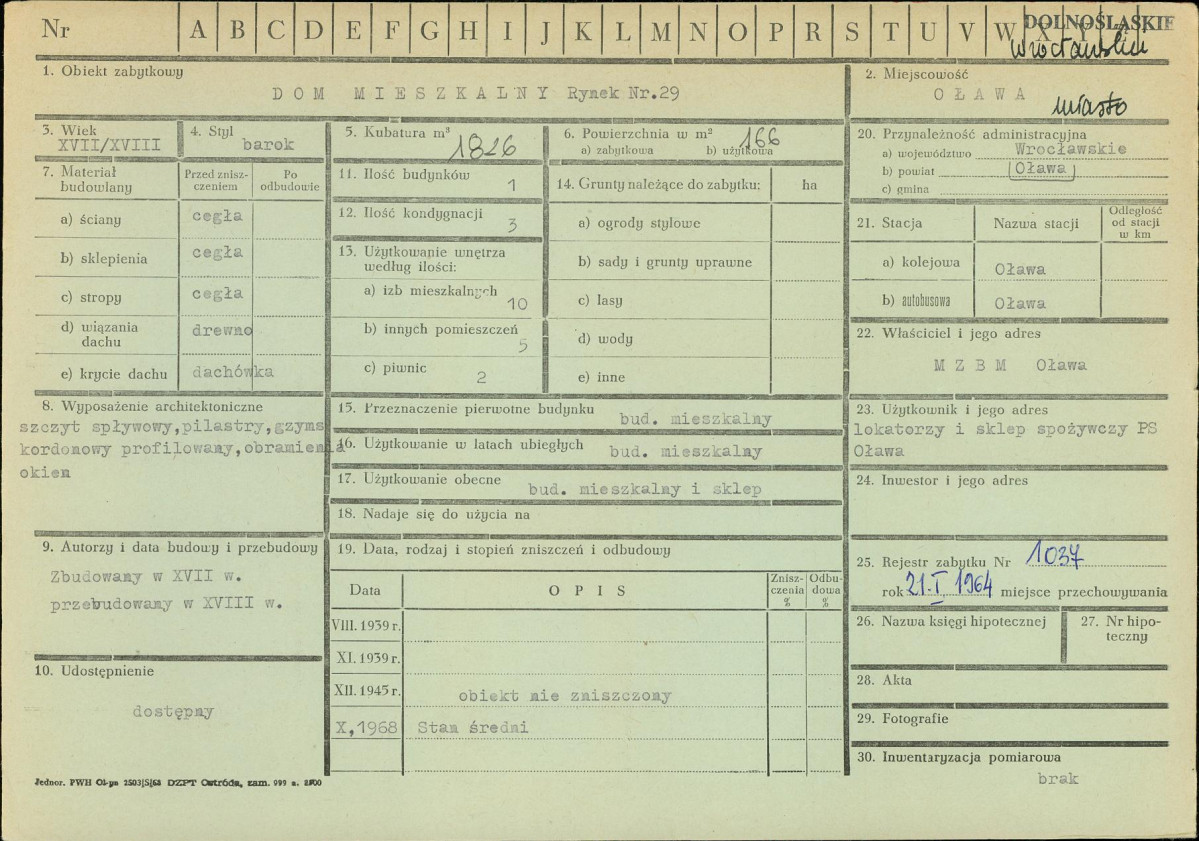 Nr A B C D E F G H I J K L M N O P R S T U V W X Y Z
DOLNOŚLĄSKIE
Wrocławskie
1. Obiekt zabytkowy
DOM MIESZKALNY Rynek Nr.29
2. Miejscowość
OŁAWA
miasto
3. Wiek
XVII/XVIII
4. Styl
barok
5. Kubatura m³
1826
6. Powierzchnia w m²
166
a) zabytkowa b) użytkowa
7. Materiał budowlany
Przed zniszczeniem
Po odbudowie
a) ściany cegła
b) sklepienia cegła
c) stropy cegła
d) wiązania dachu drewno
e) krycie dachu dachówka
8. Wyposażenie architektoniczne
szczyt spływowy,pilastry,gzyms
kordonowy profilowany,obramienia
okien
9. Autorzy i data budowy i przebudowy
Zbudowany w XVII w.
przebudowany w XVIII w.
10. Udostępnienie
dostępny
11. Ilość budynków
1
12. Ilość kondygnacji
3
13. Użytkowanie wnętrza
według ilości:
a) izb mieszkalnych
10
b) innych pomieszczeń
5
c) piwnic
2
14. Grunty należące do zabytku: ha
a) ogrody stylowe
b) sady i grunty uprawne
c) lasy
d) wody
e) inne
15. Przeznaczenie pierwotne budynku bud. mieszkalny
16. Użytkowanie w latach ubiegłych bud. mieszkalny
17. Użytkowanie obecne bud. mieszkalny i sklep
18. Nadaje się do użycia na
19. Data, rodzaj i stopień zniszczeń i odbudowy
Data OPIS Zniszczenia % Odbudowa %
VIII. 1939 r.
XI. 1939 r.
XII. 1945 r. obiekt nie zniszczony
X,1968 Stan średni
20. Przynależność administracyjna
a) województwo Wrocławskie
b) powiat Oława
c) gmina
21. Stacja Nazwa stacji Odległość od stacji w km
a) kolejowa Oława
b) autobusowa Oława
22. Właściciel i jego adres
MZBM Oława
23. Użytkownik i jego adres
lokatorzy i sklep spożywczy PS
Oława
24. Inwestor i jego adres
25. Rejestr zabytku Nr 1037
rok 21.I.1964 miejsce przechowywania
26. Nazwa księgi hipotecznej
27. Nr hipoteczny
28. Akta
29. Fotografie
30. Inwentaryzacja pomiarowa
brak
Jednor. PWH DZPT Ostróda, zam. 999 n.